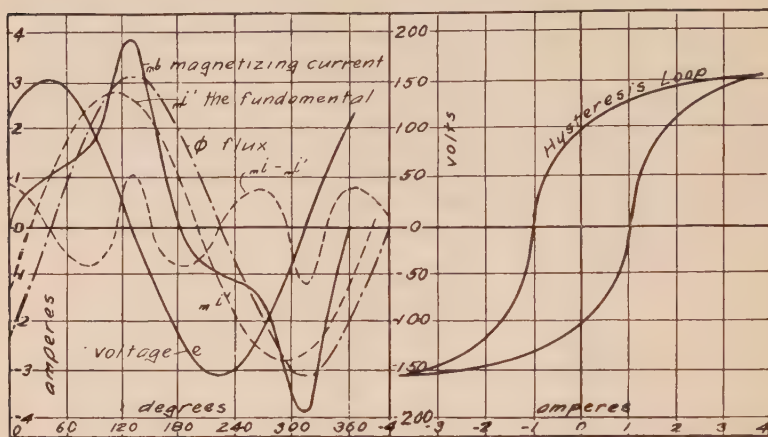 4
3
2
1
0
1
-2
-3
-4
amperes
mb magnetizing current
mi' the fundamental
ϕ flux
mi-mi'
mi
voltage-e
degrees
0 60 120 180 240 300 360
200
150
100
50
0
-50
-100
-150
200
volts
Hysteresis Loop
amperes
-4 -3 -2 -1 0 1 2 3 4